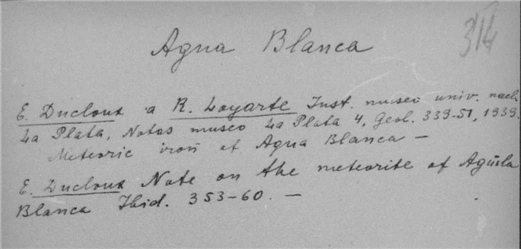 314
Agua Blanca
E. Ducloux a R. Loyarte Inst. museo univ. nacl.
La Plata, Notas museo La Plata 4, Geol. 339-51, 1939.
Meteoric iron of Agua Blanca —
E. Ducloux Note on the meteorite of Aguila
Blanca Ibid. 353-60. —